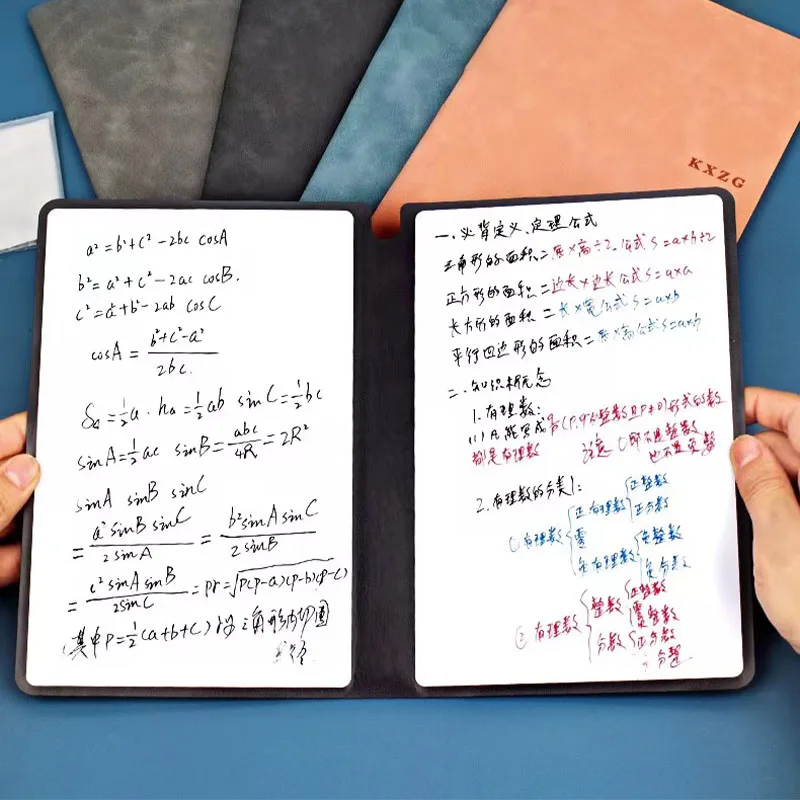 KXZG
a² = b² + c² - 2bc cosA
b² = a² + c² - 2ac cosB.
c² = a² + b² - 2ab cosC
cosA = (b² + c² - a²)/(2bc.)
= ½a · ha = ½ab sinC = ½bc
sinA = ½ac sinB = abc/4R = 2R²
sinA sinB sinC
= a² sinB sinC/2sinA = b² sinA sinC/2sinB
= c² sinA sinB/2sinC = pr = √p(p-a)(p-b)(p-c)
(其中P=½(a+b+c) 三角形内切圆
一、必背定义、定理公式
三角形的面积=底×高÷2. 公式 S=a×h÷2
正方形的面积=边长×边长 公式 S=a×a
长方形的面积=长×宽 公式 S=a×b
平行四边形的面积=底×高 公式 S=a×h
二、知识概念
1.有理数:
(1)凡能写成 (p,q为整数且p≠0)形式的数
都是有理数 注意 0即不是整数
也不是负数
2.有理数的分类1:
①有理数 { 正有理数 { 正整数
正分数
零
负有理数 { 负整数
负分数
②有理数 { 整数 { 正整数
零
负整数
分数 { 正分数